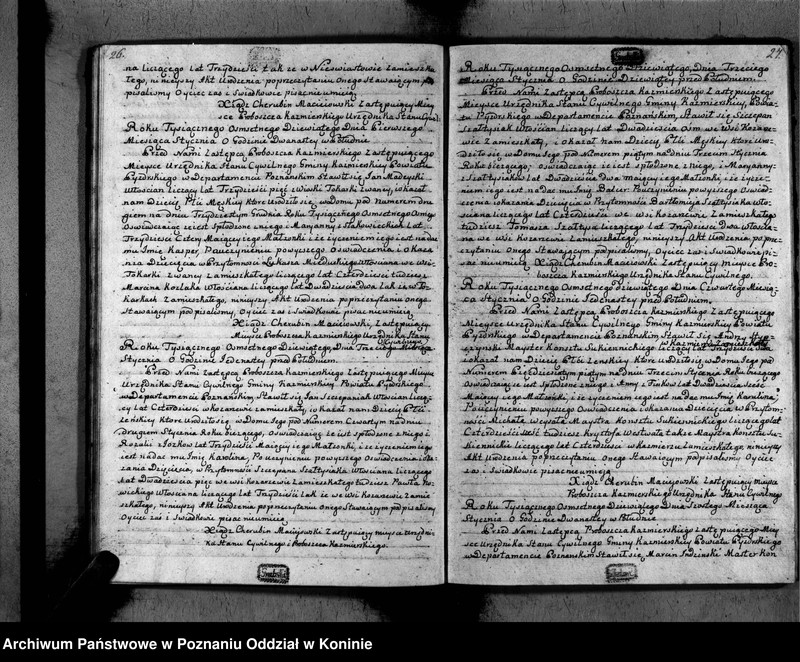 26.
na liczącego lat Trzydzieści tak że w Nieswiastowie zamieszka
łego, ninieyszy Akt Urodzenia po przeczytaniu onego Stawaiącym po
pisalismy Oyciec zaś i Swiadkowie pisac nie umieią.
Xiądz Cherubin Macieiowski Zastępuiący Miey
sce Proboszcza Kazmierskiego Urzędnika Stanu Cywil.
Roku Tysiącznego Osmsetnego Dziewiątego Dnia Pierwszego
Miesiąca Stycznia o Godzinie Dwanastey w Południe.
Przed Nami Zastępcą Proboszcza Kazmierskiego Zastępuiącego
Mieysce Urzędnika Stanu Cywilnego Gminy Kazmierskiey Powiatu
Pyzdrskiego w Departamencie Poznańskim Stawił się Jan Madeyski
Włoscian liczący lat Trzydzieści pięć z Wioski Tokarki zwaney, i okazał
nam Dziecię Płci Męskiey które Urodziło się w domu pod Numerem dru
gim na dniu Trzydziestym Grudnia Roku Tysiącznego Osmsetnego Osmego
Oswiadczaiąc że iest spłodzone z niego i Maryanny z Stakowieckich lat
Trzydzieści Cztery Maiącey iego Małzonki i że życzeniem iego iest nadac
mu Imię Kasper, Po uczynieniu powyszego Oswiadczenia i okaza
nia Dziecięcia w Przytomności Łukasza Włoscianina we Wsi
Tokarki zwaney Zamieszkałego liczącego lat Czterdzieści tudzież
Marcina Kozlaka Włoscianina liczącego lat Dwadzieścia Dwa tak że w To
karkach Zamieszkałego, ninieyszy Akt Urodzenia po przeczytaniu onego
Stawaiącym podpisalismy, Oyciec zaś i Swiadkowie pisac nie umieią.
Xiądz Cherubin Macieiowski, Zastępuiący
Mieysce Proboszcza Kazmierskiego Urzędnika Stanu
Cywilnego
Roku Tysiącznego Osmsetnego Dziewiątego, Dnia Trzeciego Miesiąca
Stycznia o Godzinie Jedenastey przed Południem.
Przed Nami Zastępcą Proboszcza Kazmierskiego Zastępuiącego Mieysce
Urzędnika Stanu Cywilnego Gminy Kazmierskiey Powiatu Pyzdrskiego
w Departamencie Poznańskim, Stawił się Jan Szczepaniak Włoscian liczą
cy lat Czterdzieści w Kozarzewie zamieszkały i okazał nam Dziecię Płci
Żeńskiey które Urodziło się w Domu Jego pod Numerem Czwartym na dniu
drugiem Stycznia Roku bieżącego, oswiadczaiąc że iest spłodzone z niego i
Rozalii z Jozkow lat Trzydzieści Maiącey iego Małżonki, i że życzeniem iego
iest nadac mu Imię Karolina, Po uczynieniu powyszego Oswiadczenia i oka
zania Dziecięcia, w Przytomności Szczepana Szałtysiaka Włoscianina liczącego
lat Dwadzieścia pięc we wsi Kozarzewie Zamieszkałego tudzież Pawła
wickiego Włoscianina liczącego lat Trzydzieści tak że we wsi Kozarzewie Zamie
szkałego, ninieyszy Akt Urodzenia po przeczytaniu onego Stawaiącym podpisalismy
Oyciec zaś i Swiadkowie pisac nie umieią.
Xiądz Cherubin Macieiowski Zastępuiący mieysce Urzędni
ka Stanu Cywilnego i Proboszcza Kazmierskiego.
27
Roku Tysiącznego Osmsetnego Dziewiątego, Dnia Trzeciego
Miesiąca Stycznia o Godzinie Dziewiątey przed Południem.
Przed Nami Zastępcą Proboszcza Kazmierskiego Zastępuiącego
Mieysce Urzędnika Stanu Cywilnego Gminy Kazmierskiey, Powia
tu Pyzdrskiego w Departamencie Poznańskim, Stawił się Szczepan
Szałtysiak Włoscian liczący lat Dwadzieścia Osm we Wsi Kozarze
wie Zamieszkały, i okazał nam Dziecię Płci Męskiey które Uro
dziło się w Domu Jego pod Numerem piątym na dniu Trzecim Stycznia
Roku bieżącego, oswiadczaiąc że iest spłodzone z niego, i Maryanny
z Szałtysiaków lat Dwadzieścia Dwa maiącey iego Małżonki, i że życze
niem iego iest nadac mu Imię Balcer. Po uczynieniu powyszego Oswiad
czenia okazania Dziecięcia w Przytomności Bartłomieja Szałtysiaka Wło
scianina liczącego lat Czterdzieści we wsi Kozarzewie Zamieszkałego
tudzież Tomasza Szałtysa liczącego lat Trzydzieści Dwa Włoscia
nina we Wsi Kozarzewie Zamieszkałego, ninieyszy Akt Urodzenia po prze
czytaniu onego Stawaiącym podpisalismy, Oyciec zaś i Swiadkowie pi
sac nie umieią. Xiądz Cherubin Macieiowski Zastępuiący mieysce Pro
boszcza Kazmierskiego Urzędnika Stanu Cywilnego.
Roku Tysiącznego Osmsetnego Dziewiątego Dnia Czwartego Miesią
ca Stycznia o Godzinie Jedenastey przed Południem.
Przed Nami Zastępcą Proboszcza Kazmierskiego Zastępuiącego
Mieysce Urzędnika Stanu Cywilnego Gminy Kazmierskiey Powiatu
Pyzdrskiego w Departamencie Poznańskim Stawił się Andrzey
Maystер Konsztu Sukienniczego liczący lat Trzydzieści
i okazał nam Dziecię Płci Żenskiey które Urodziło się w Domu Jego pod
Numerem Pięćdziesiątym piątym na dniu Trzecim Stycznia Roku bieżącego
Oswiadczaiąc że iest spłodzone z niego i Anny z Finkow lat Dwadzieścia Sześć
Maiącey iego Małżonki, i że życzeniem iego iest nadac mu Imię Karolina,
Po uczynieniu powyszego Oswiadczenia i okazania Dziecięcia w Przytom
ności Michała Maystra Konsztu Sukienniczego liczącego lat
Czterdzieści Sześć tudzież Krysztofa także Maystra Konsztu Su
kienniczego liczącego lat Czterdzieści w Kazmierzu Zamieszkałego, ninieyszy
Akt Urodzenia po przeczytaniu onego Stawaiącym podpisalismy Oyciec
zaś i Swiadkowie pisac nie umieią.
Xiądz Cherubin Macieiowski Zastępuiący mieysce
Proboszcza Kazmierskiego Urzędnika Stanu Cywilnego
Roku Tysiącznego Osmsetnego Dziewiątego Dnia Szostego Miesiąca
Stycznia o Godzinie Dwanastey w Południe
Przed Nami Zastępcą Proboszcza Kazmierskiego Zastępuiącego Miey
sce Urzędnika Stanu Cywilnego Gminy Kazmierskiey Powiatu Pyzdrskiego
w Departamencie Poznańskim Stawił się Marcin Maister Kon
Archiwum Państwowe w Poznaniu Oddział w Koninie